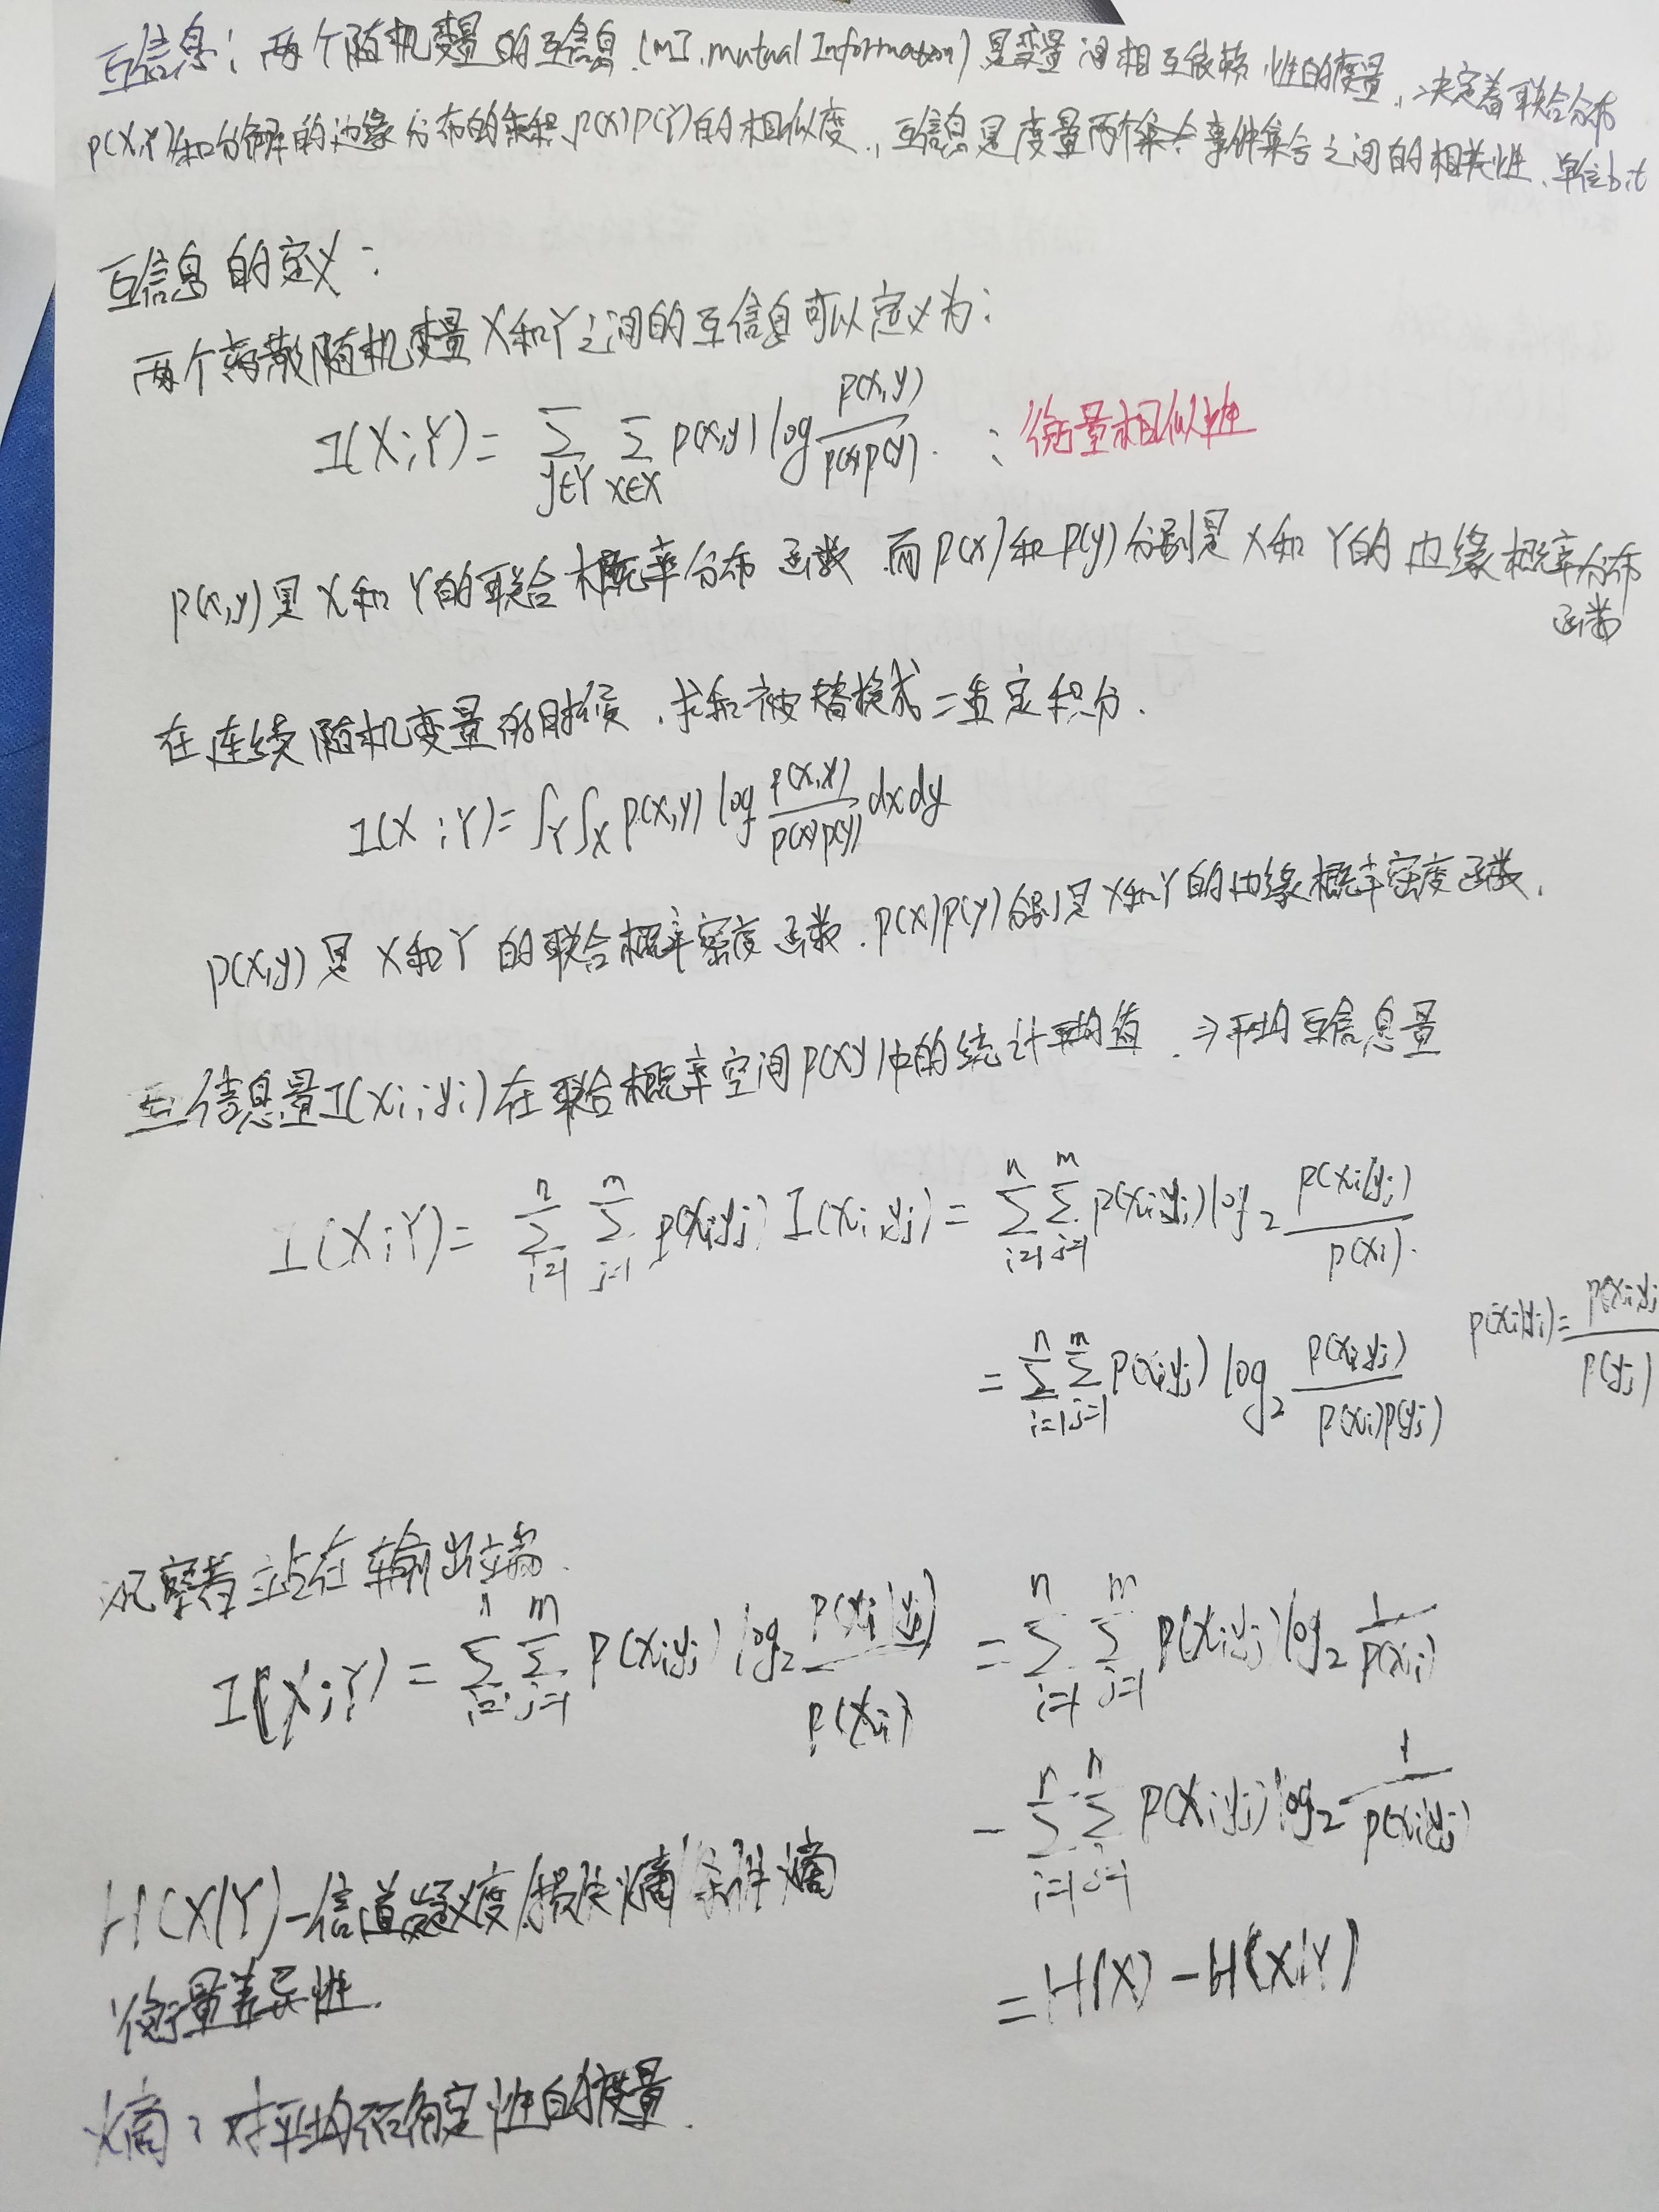 互信息：两个随机变量的互信息.(MI.mutual Information)是变量间相互依赖性的度量.,决定着联合分布
p(X,Y)和分解的边缘分布的乘积p(X)P(Y)的相似度.,互信息是度量两个集合事件集合之间的相关性、单位bit
互信息的定义：
两个离散随机变量X和Y之间的互信息可以定义为：
I(X;Y)= ∑y∈Y ∑x∈X p(x,y) log p(x,y)/p(x)p(y) . ：衡量相似性
p(x,y)是X和Y的联合概率分布函数.而p(x)和p(y)分别是X和Y的边缘概率分布
函数
在连续随机变量的时候.求和被替换成二重定积分.
I(X;Y)=∫Y∫X p(x,y) log p(x,y)/p(x)p(y) dxdy
p(x,y)是X和Y的联合概率密度函数.p(x)p(y)分别是X和Y的边缘概率密度函数.
互信息量I(xi;yj)在联合概率空间P(XY)中的统计平均值.⇒平均互信息量
I(X;Y)= ∑i=1^n ∑j=1^m p(xiyj) I(xi;yj)= ∑i=1^n ∑j=1^m p(xiyj)log2 p(xi|yj)/p(xi).
= ∑i=1^n ∑j=1^m p(xiyj) log2 p(xiyj)/p(xi)p(yj)
p(xi|yj)= p(xiyj/p(yj)
观察者站在输出端.
I(X;Y)= ∑i=1^n ∑j=1^m p(xiyj) log2 p(xi|yj)/p(xi) = ∑i=1^n ∑j=1^m p(xiyj)log2 1/p(xi)
- ∑i=1^n ∑j=1^n p(xiyj)log2 1/p(xi|yj)
= H(X) - H(X|Y)
H(X|Y)-信道疑义度/损失熵/条件熵
衡量差异性.
熵：对平均不确定性的度量.